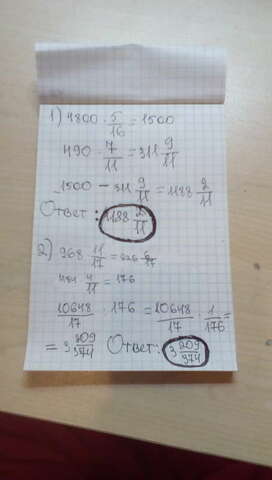 1) 4800 · 5/16 = 1500
490 · 7/11 = 311 9/11
1500 - 311 9/11 = 1188 2/11
Ответ: 1188 2/11
2) 968 11/17 =
484 4/11 = 176
10648/17 : 176 = 10648/17 · 1/176 =
= 3 209/374 Ответ: 3 209/374